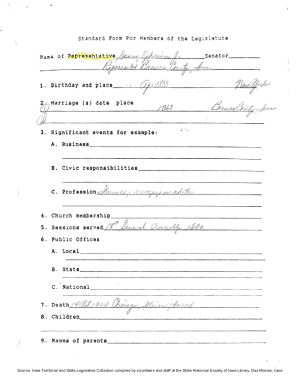 Standard Form For Members of the Legislature
Name of Representative Senator
Represented County, Iowa
1. Birthday and place Apr 1835 New York
2. Marriage (s) date place 1863 County, Iowa
3. Significant events for example:
A. Business
B. Civic responsibilities
C. Profession Farmer, newspaper editor
4. Church membership
5. Sessions served 18th General Assembly 1880
6. Public Offices
A. Local
B. State
C. National
7. Death Chicago, Illinois
8. Children
9. Names of parents
Source: Iowa Territorial and State Legislators Collection compiled by volunteers and staff at the State Historical Society of Iowa Library, Des Moines, Iowa.